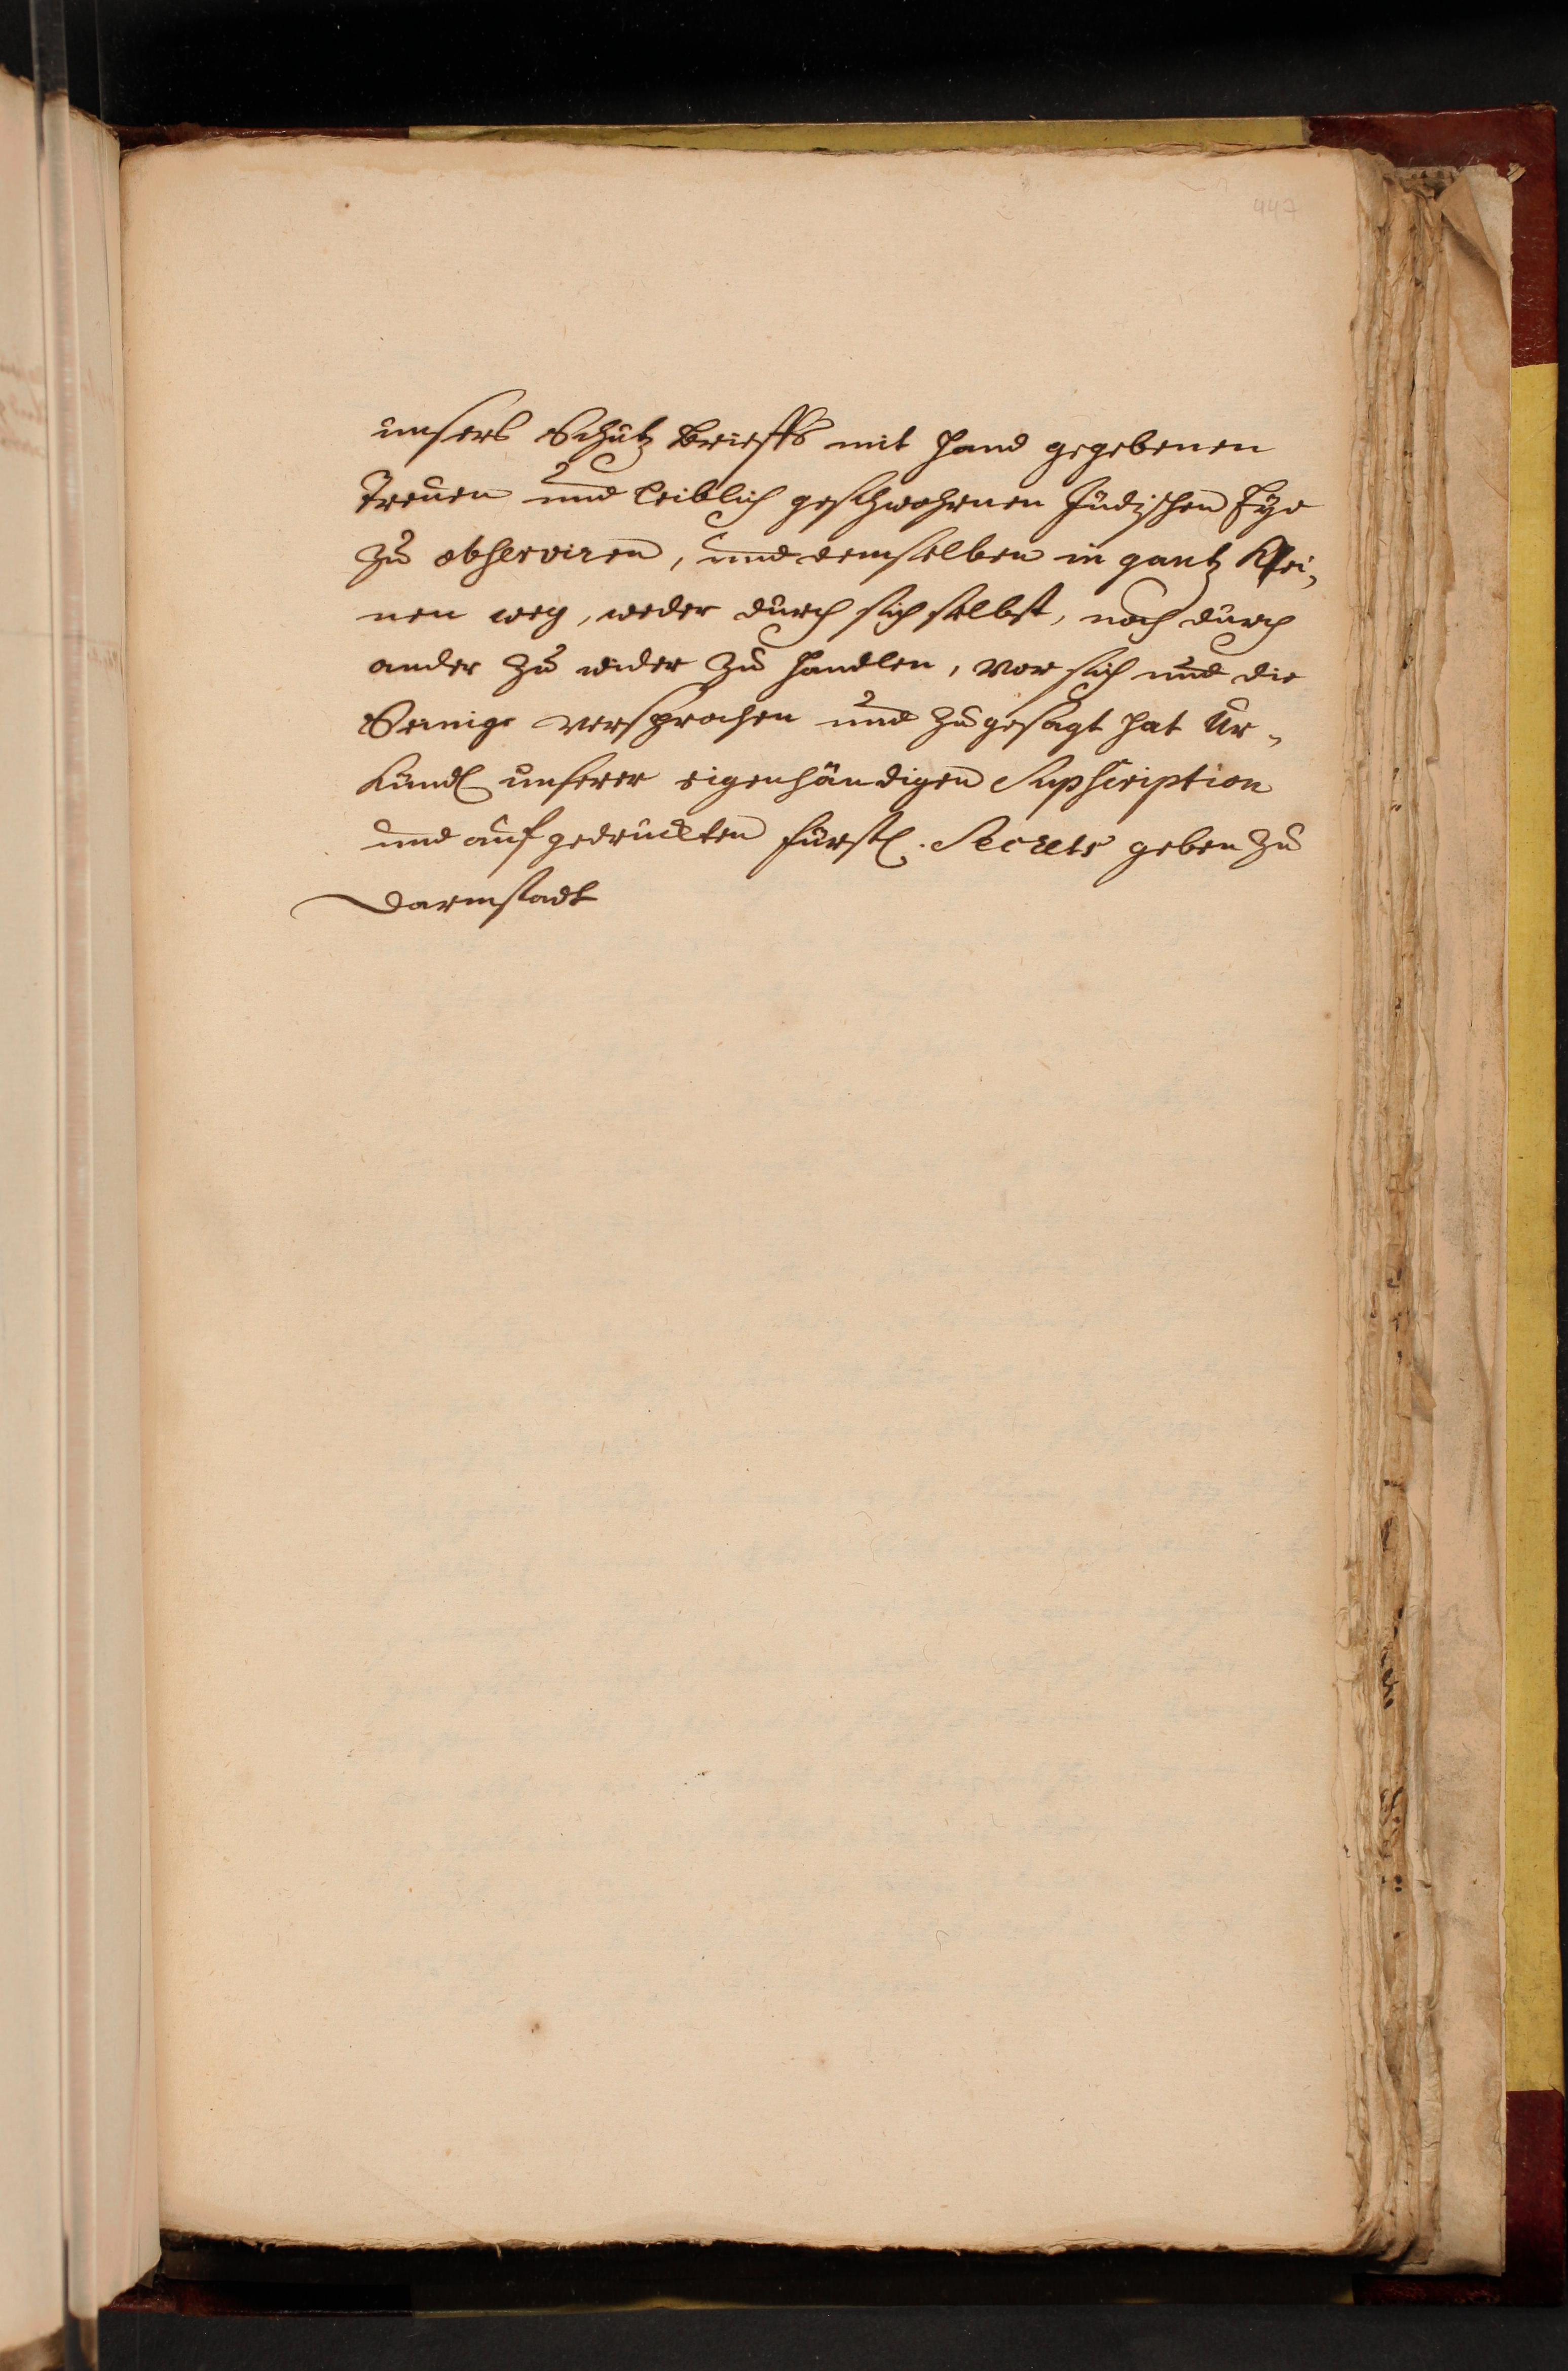 447
unsers Schutz Brieffs mit Hand gegebenen
Treuen und leiblich geschwohrnen Jüdischen Eyd
zu observiren, und demselben in gantz Kei„
nen weg, weder durch sich selbst, noch durch
ander zu wider zu handlen, vor sich und die
Seinige versprochen und zugesagt hat Ur„
kundl unserer eigenhändigen Supscription
und aufgedruckten fürstl. Secrets geben zu
Darmstadt